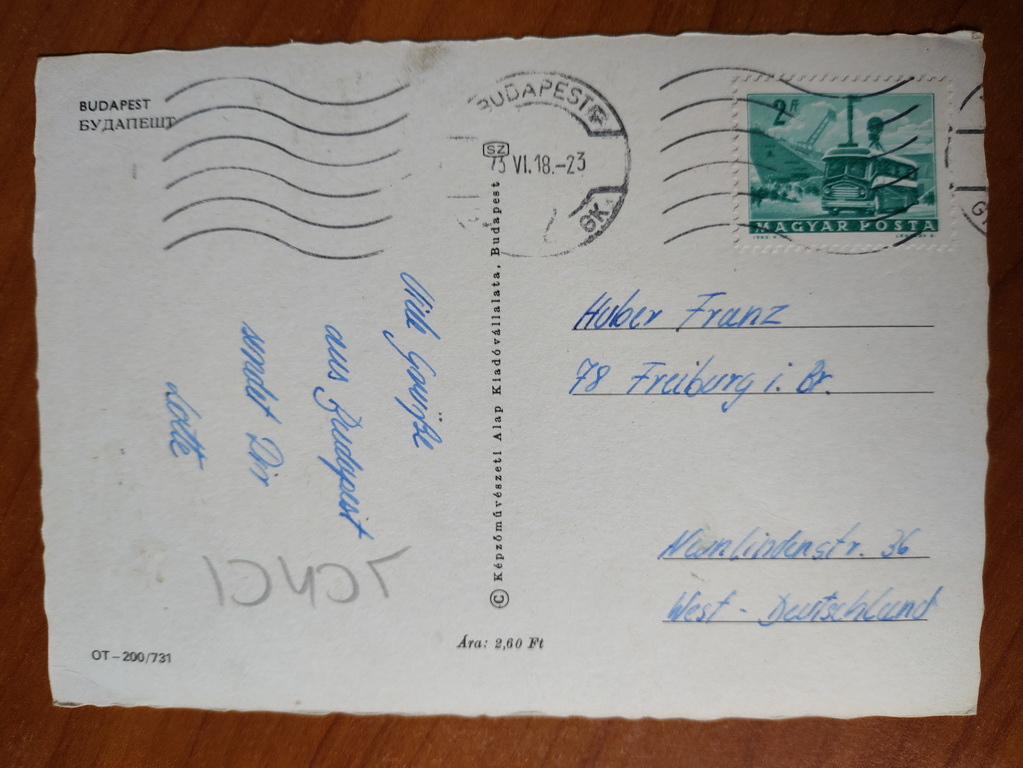 BUDAPEST
БУДАПЕШТ
BUDAPEST
SZ
73 VI.18.-23
GK
2 Ft
MAGYAR POSTA
Viele Grüße
aus Budapest
sendet Dir
Lotte
© Képzőművészeti Alap Kiadóvállalata, Budapest
Huber Franz
78 Freiburg i. Br.
36
West-Deutschland
Ára: 2,60 Ft
OT–200/731